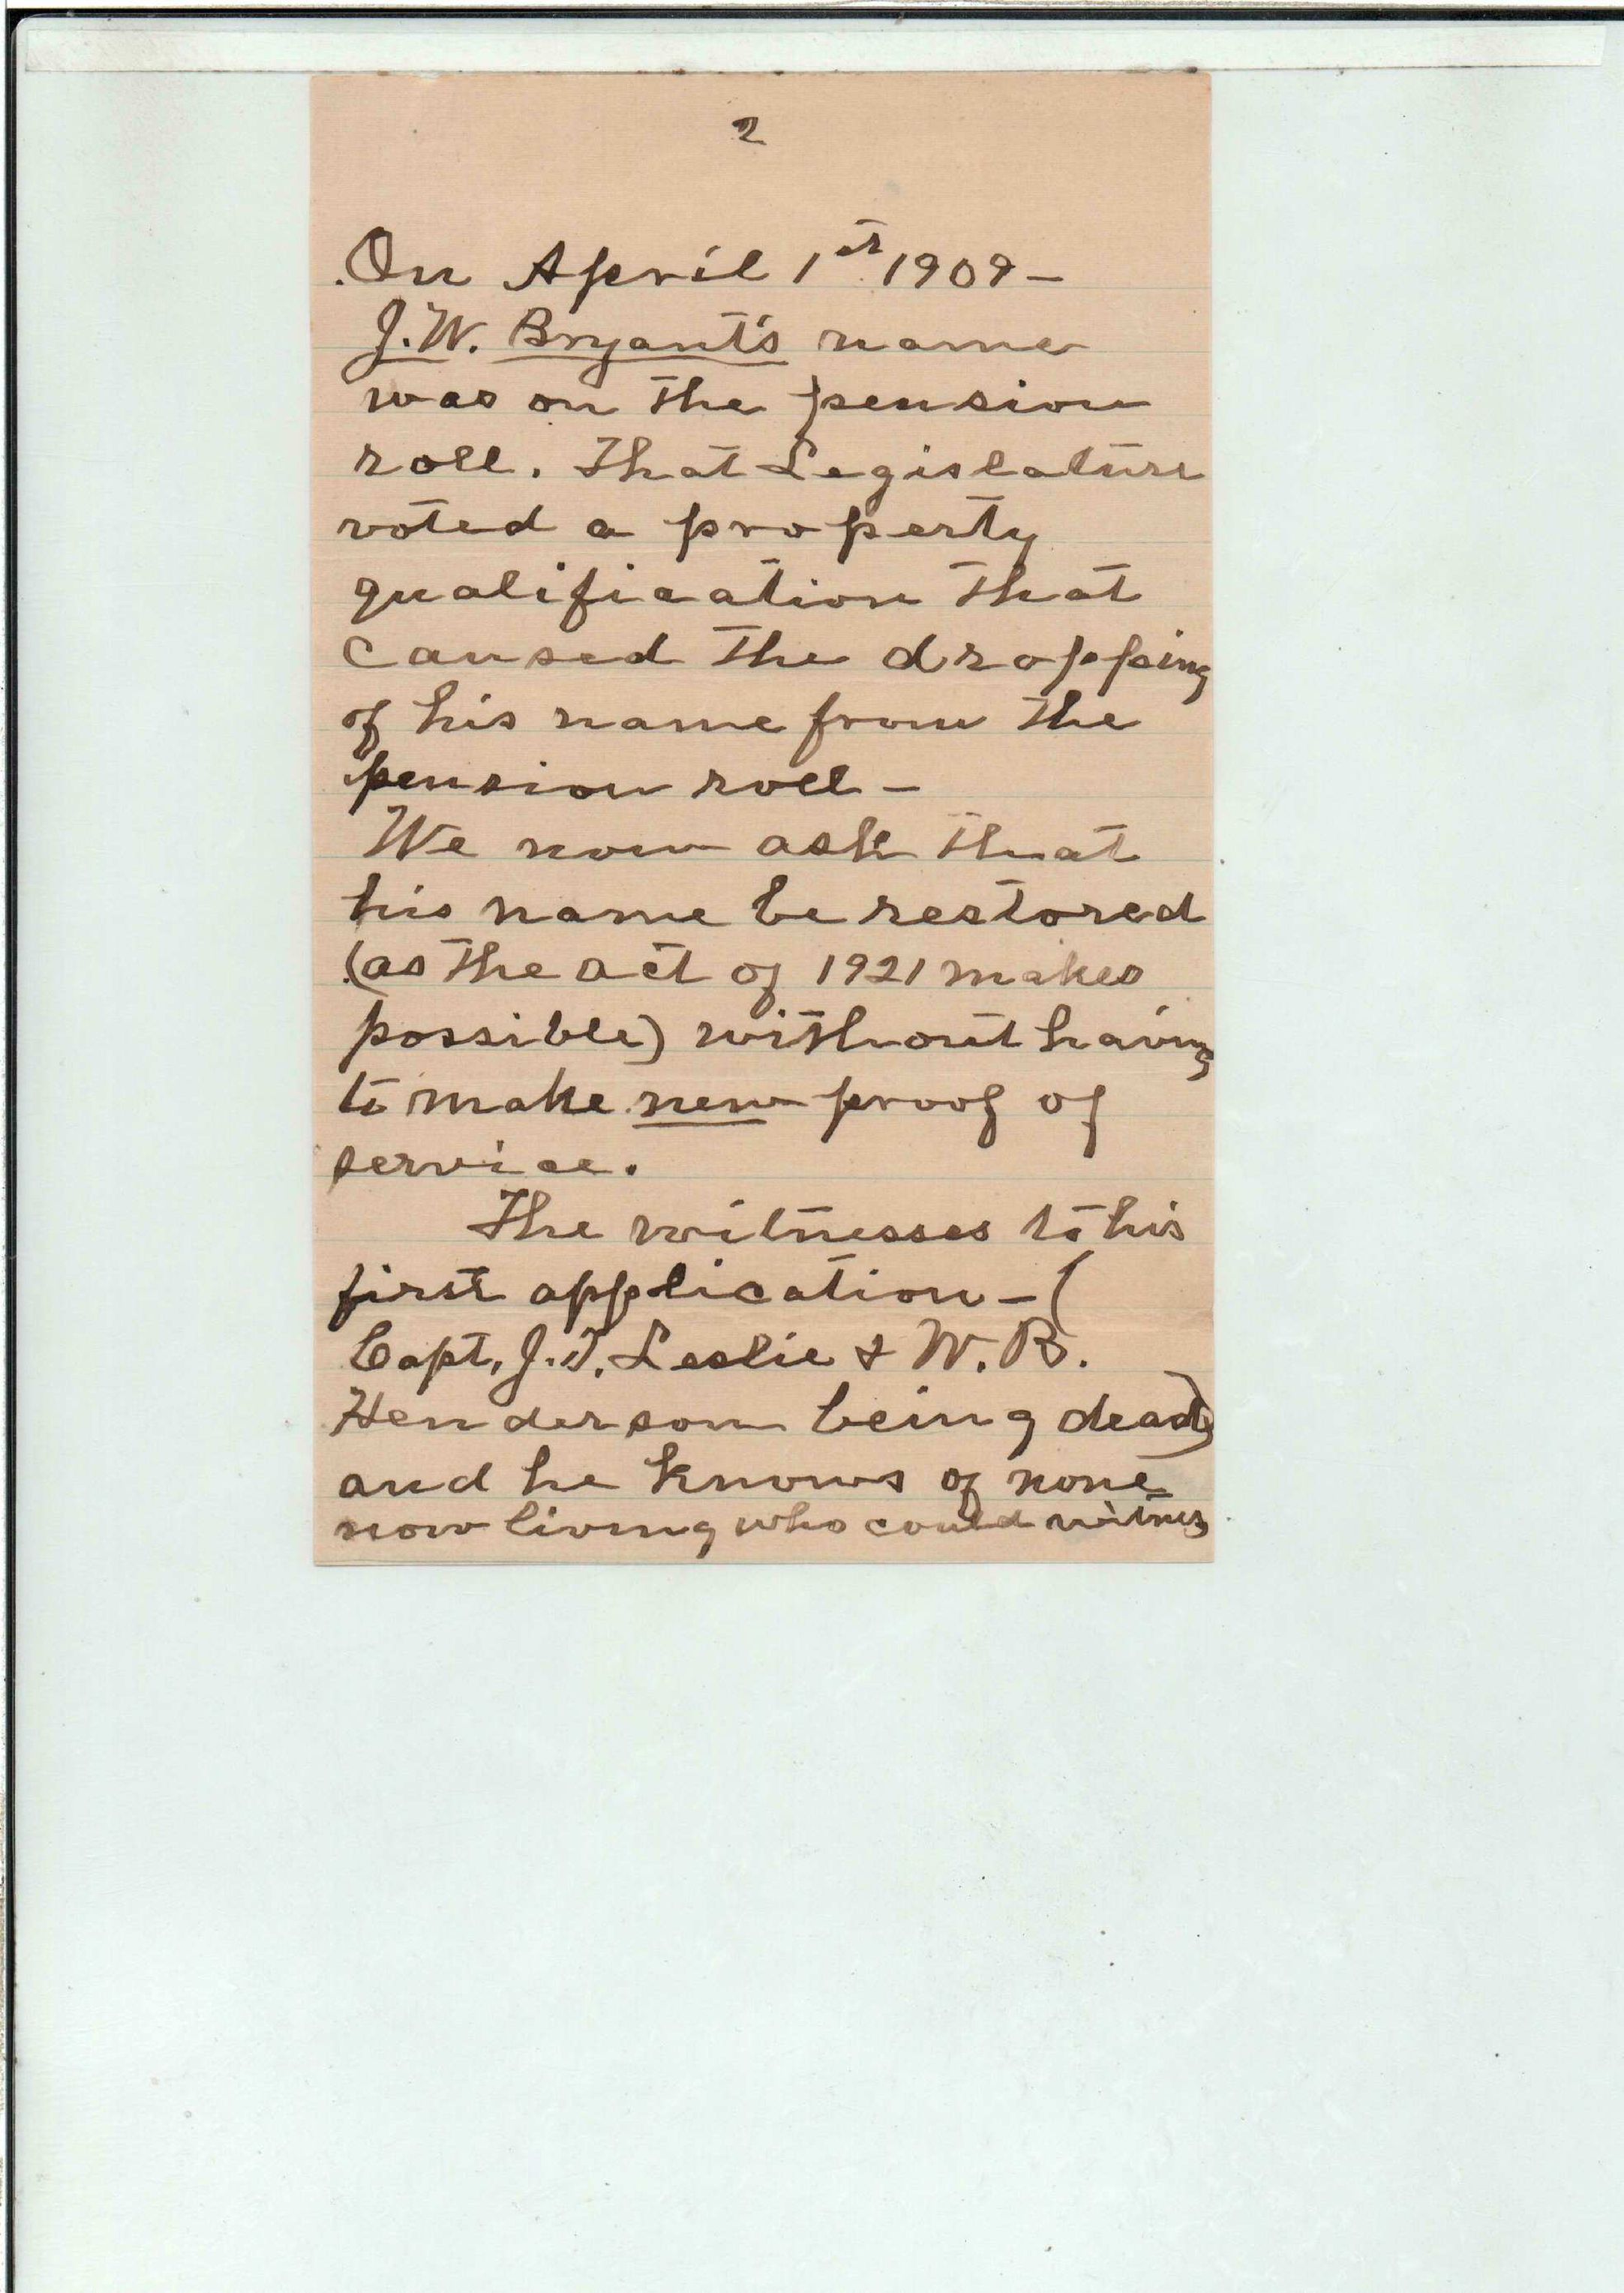 2
On April 1st 1909 -
J.W. Bryant's name
was on the pension
roll. That Legislature
voted a property
qualification that
caused the dropping
of his name from the
pension roll -
We now ask that
his name be restored
(as the act of 1921 makes
possible) without having
to make new proof of
service.
The witnesses to his
first application - (
Capt. J.T. Leslie & W.B.
Henderson being dead)
and he knows of none
now living who could witness